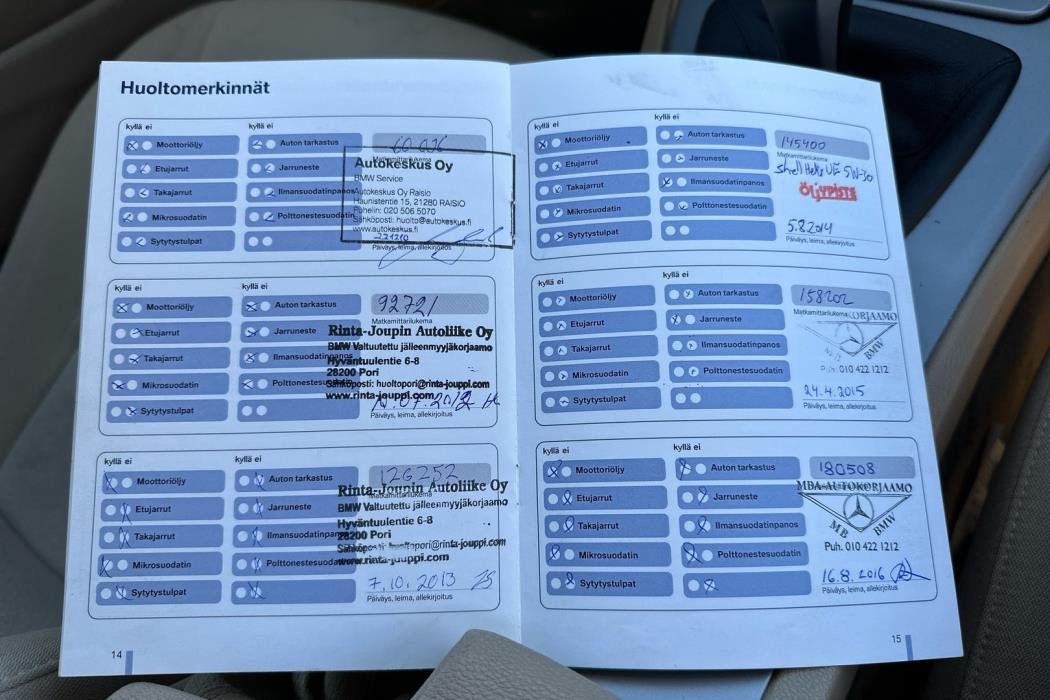 Huoltomerkinnät
kyllä ei kyllä ei
Moottoriöljy Auton tarkastus 60 036
Etujarrut Jarruneste Matkamittarilukema
Takajarrut Ilmansuodatinpanos
Mikrosuodatin Polttonestesuodatin
Sytytystulpat
Autokeskus Oy
BMW Service
Autokeskus Oy Raisio
Haunistentie 15, 21280 RAISIO
Puhelin: 020 506 5070
Sähköposti: huolto@autokeskus.fi
www.autokeskus.fi
221210
Päiväys, leima, allekirjoitus
kyllä ei kyllä ei
Moottoriöljy Auton tarkastus 92721
Etujarrut Jarruneste Matkamittarilukema
Takajarrut Ilmansuodatinpanos
Mikrosuodatin Polttonestesuodatin
Sytytystulpat
Rinta-Joupin Autoliike Oy
BMW Valtuutettu jälleenmyyjäkorjaamo
Hyväntuulentie 6-8
28200 Pori
Sähköposti: huoltopori@rinta-jouppi.com
www.rinta-jouppi.com
07.2012
Päiväys, leima, allekirjoitus
kyllä ei kyllä ei
Moottoriöljy Auton tarkastus 126252
Etujarrut Jarruneste Matkamittarilukema
Takajarrut Ilmansuodatinpanos
Mikrosuodatin Polttonestesuodatin
Sytytystulpat
Rinta-Joupin Autoliike Oy
BMW Valtuutettu jälleenmyyjäkorjaamo
Hyväntuulentie 6-8
28200 Pori
Sähköposti: huoltopori@rinta-jouppi.com
www.rinta-jouppi.com
7.10.2013
Päiväys, leima, allekirjoitus
14
kyllä ei kyllä ei
Moottoriöljy Auton tarkastus 145400
Etujarrut Jarruneste Matkamittarilukema
Takajarrut Ilmansuodatinpanos Shell Helix 5W-30
Mikrosuodatin Polttonestesuodatin ÖLJYPISTE
Sytytystulpat 5.8.2014
Päiväys, leima, allekirjoitus
kyllä ei kyllä ei
Moottoriöljy Auton tarkastus 158202
Etujarrut Jarruneste Matkamittarilukema KORJAAMO
Takajarrut Ilmansuodatinpanos BMW
Mikrosuodatin Polttonestesuodatin Puh. 010 422 1212
Sytytystulpat 24.4.2015
Päiväys, leima, allekirjoitus
kyllä ei kyllä ei
Moottoriöljy Auton tarkastus 180508
Etujarrut Jarruneste MBA-AUTOKORJAAMO
Takajarrut Ilmansuodatinpanos MB BMW
Mikrosuodatin Polttonestesuodatin Puh. 010 422 1212
Sytytystulpat 16.8.2016
Päiväys, leima, allekirjoitus
15